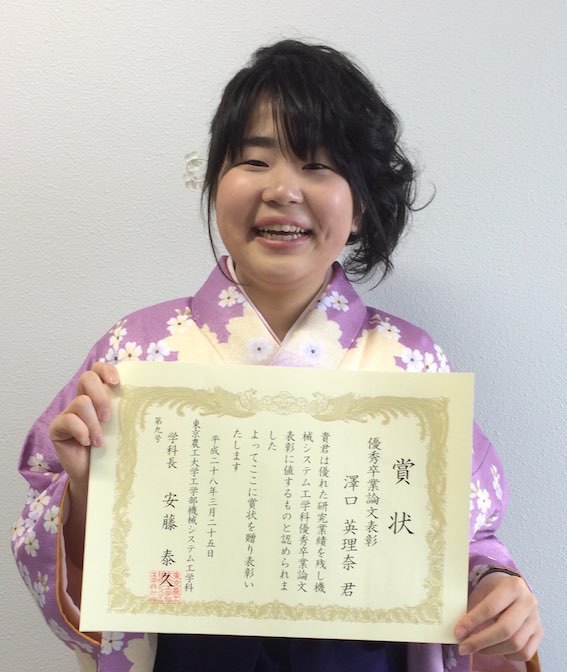 賞状
優秀卒業論文表彰
澤口 英理奈 君
貴君は優れた研究業績を残し機
械システム工学科優秀卒業論文
表彰に値するものと認められま
した
よってここに賞状を贈り表彰い
たします
平成二十八年三月二十五日
東京農工大学工学部機械システム工学科
学科長 安藤 泰久
第九号